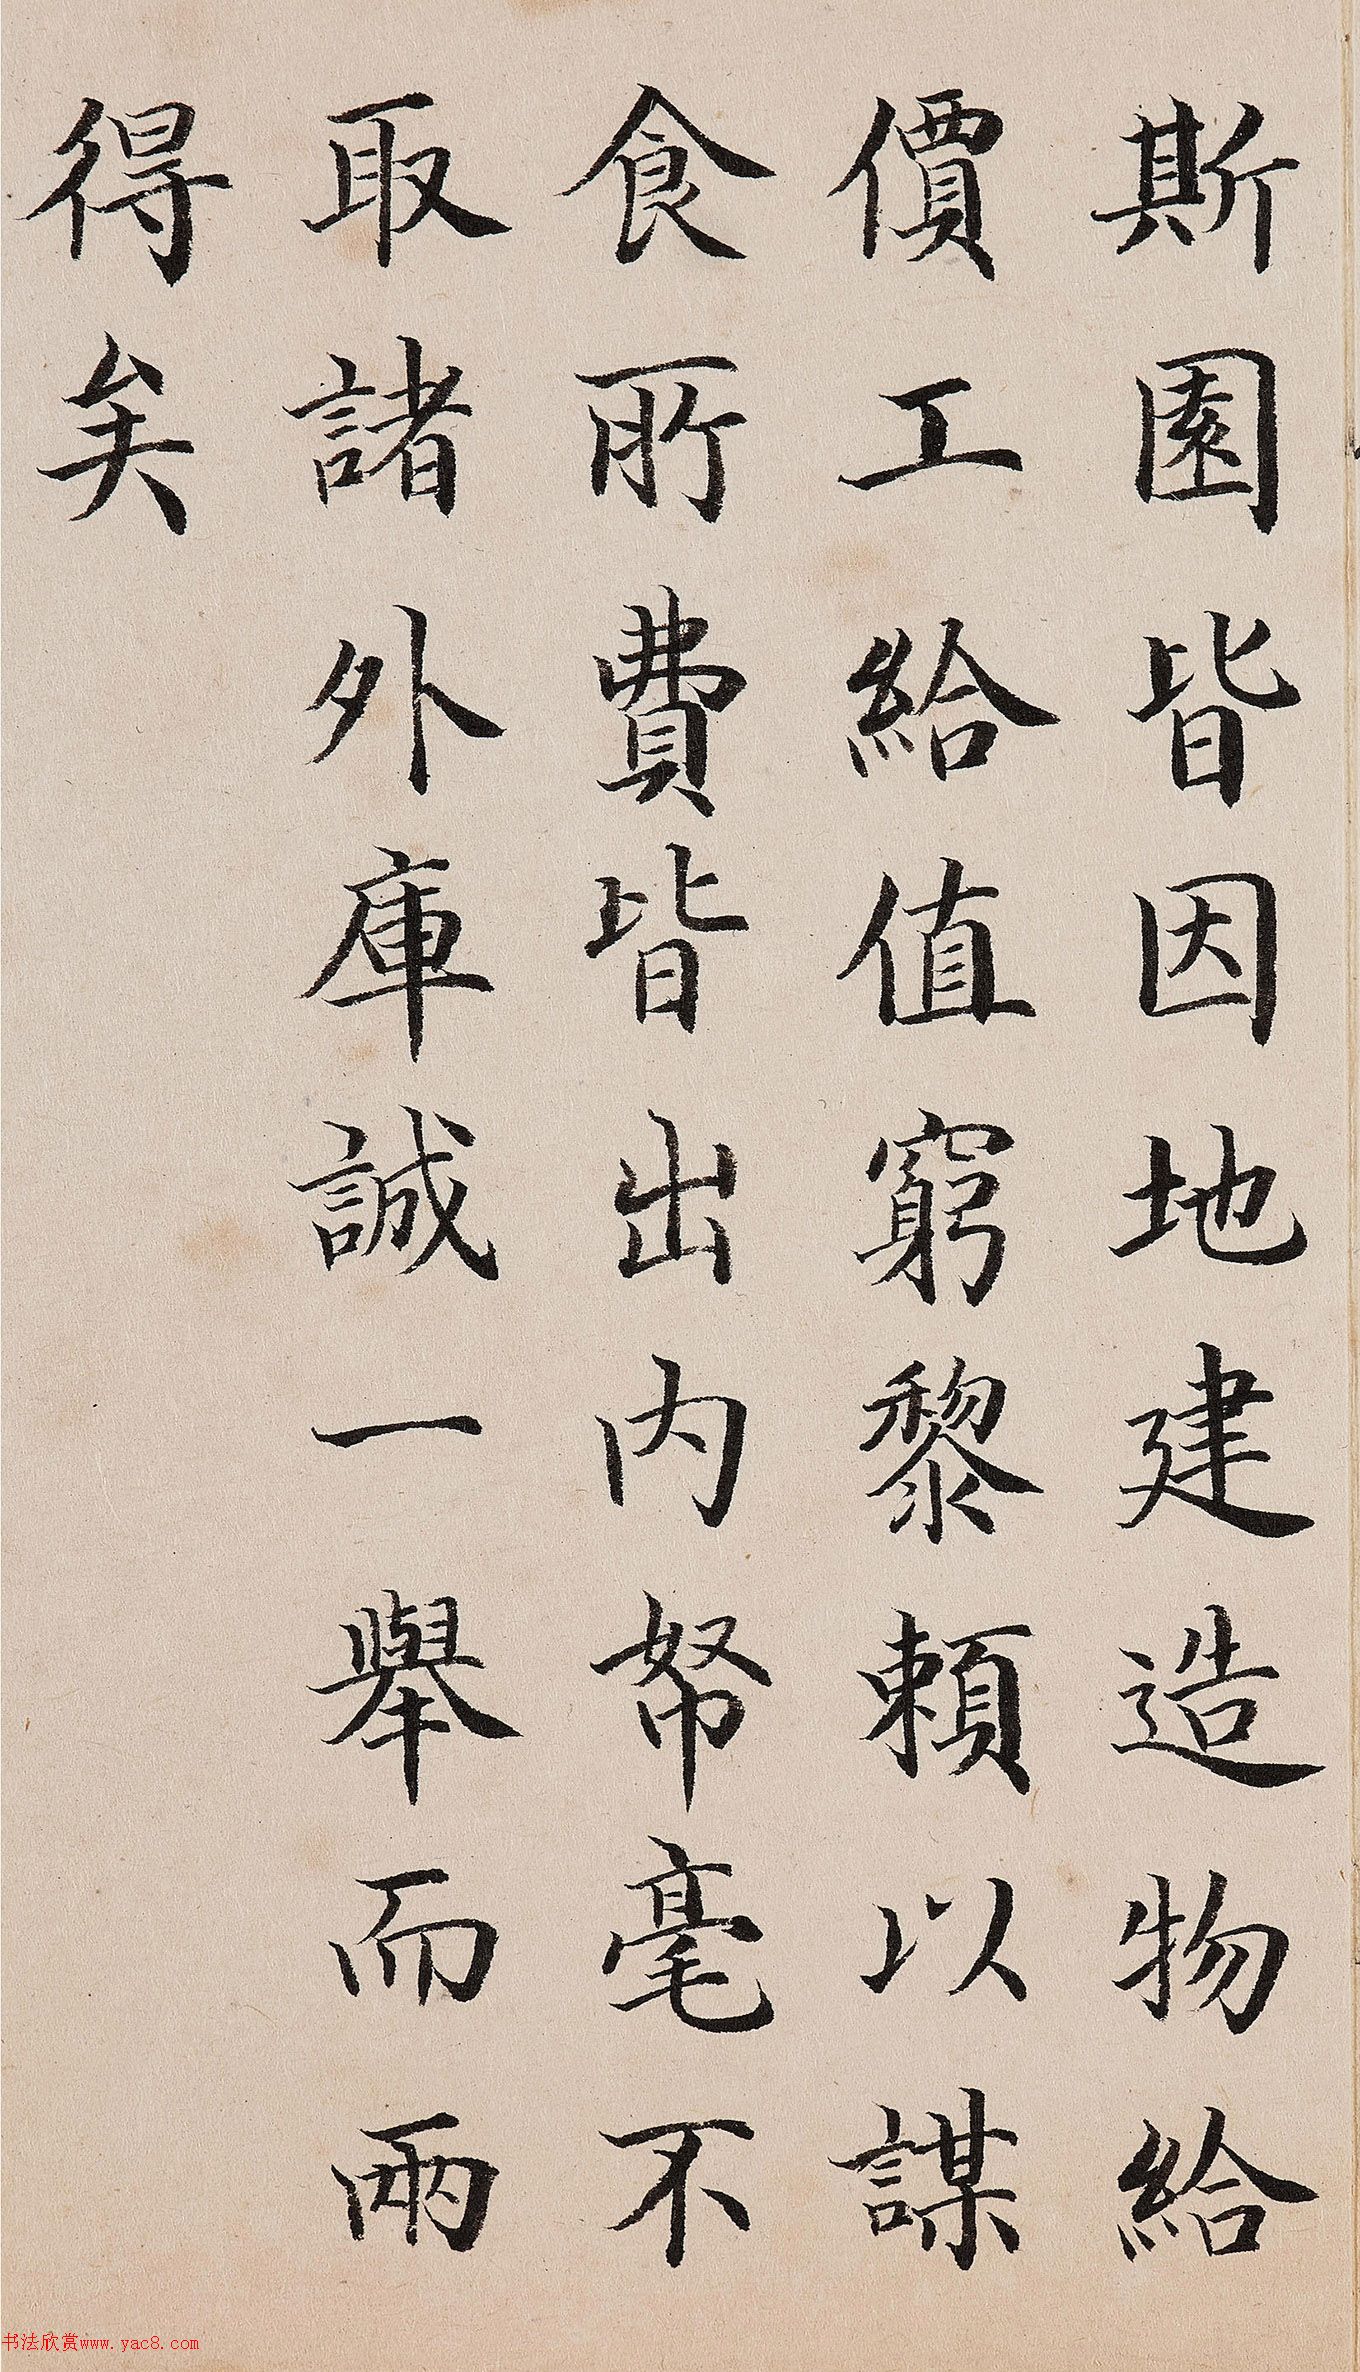 斯園皆因地建造物給
價工給值窮黎賴以謀
食所費皆出内帑毫不
取諸外庫誠一舉而兩
得矣
书法欣赏www.yac8.com